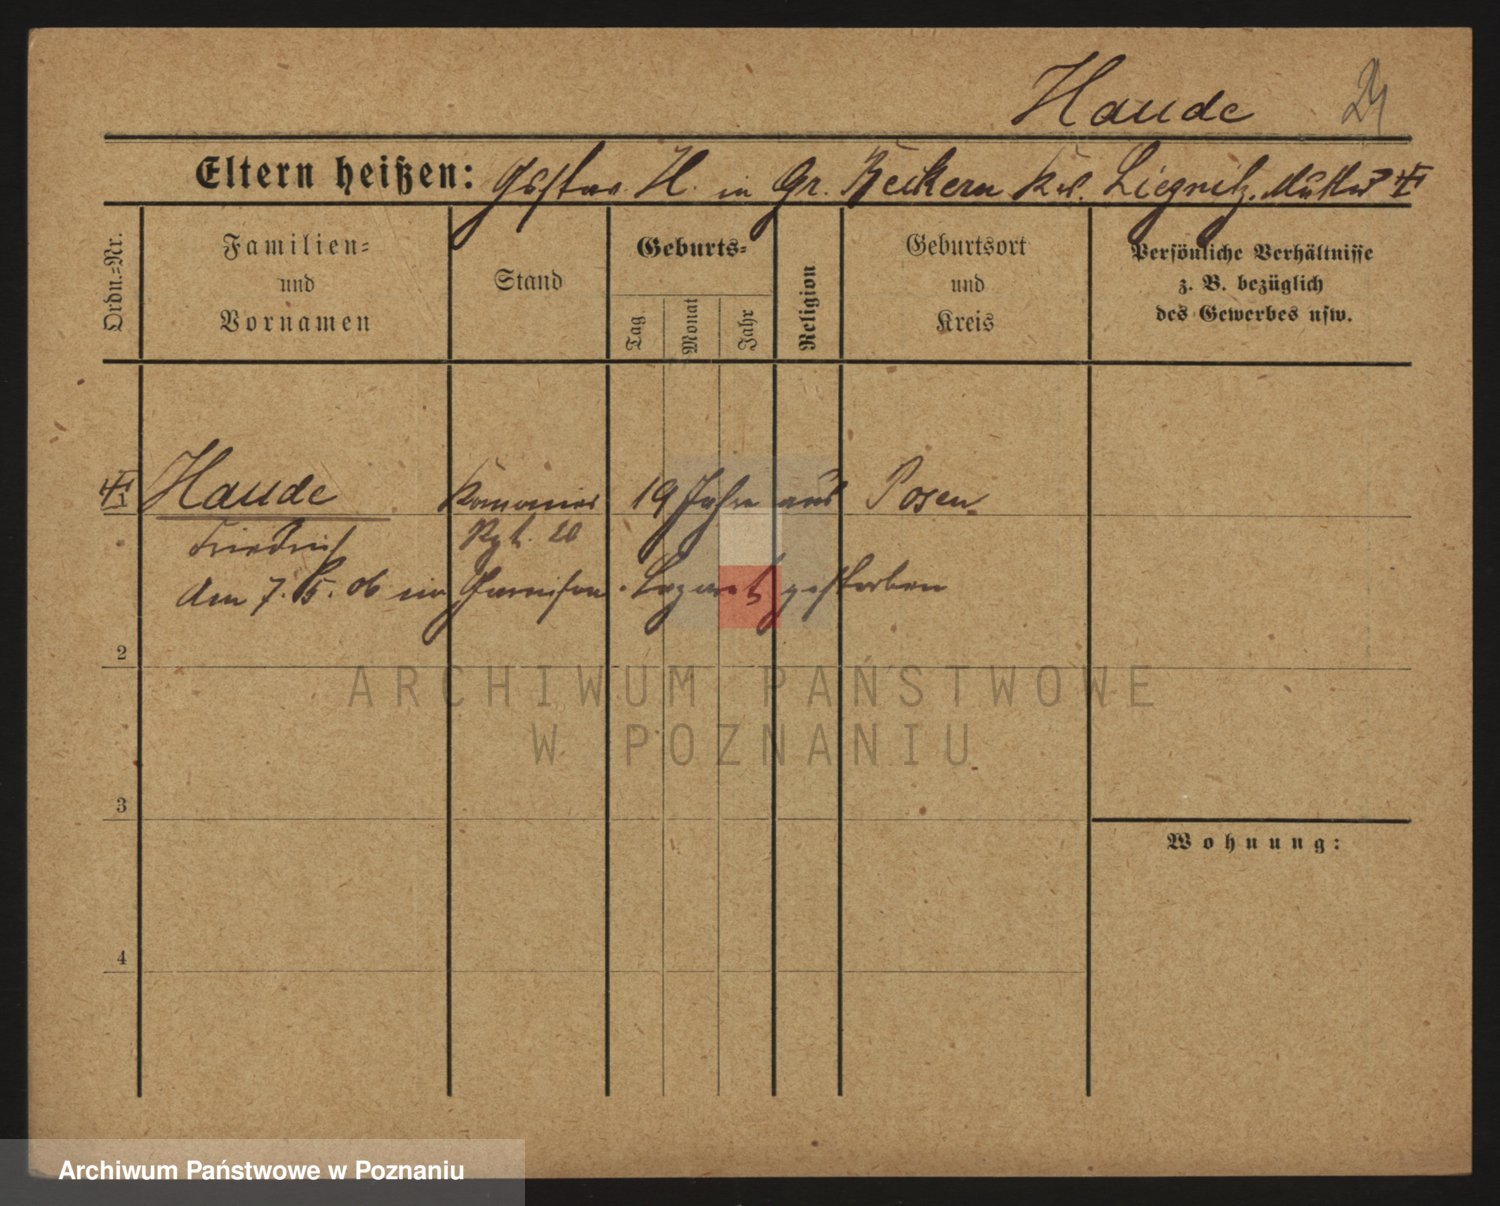 Haude
Eltern heißen: Gustav H. in Gr. Beckern Krs. Liegnitz. Mutter
Ordn.=Nr.
Familien=
und
Vornamen
Stand
Geburts=
Tag
Monat
Jahr
Religion
Geburtsort
und
Kreis
Persönliche Verhältnisse
z. B. bezüglich
des Gewerbes usw.
Haude Kanonier 19 Jahre aus Posen
Friedrich Rgt. 20
Am 7. 5. 06 im Garnison-Lazareth gestorben
2
ARCHIWUM PAŃSTWOWE
W POZNANIU
3
Wohnung:
4
Archiwum Państwowe w Poznaniu